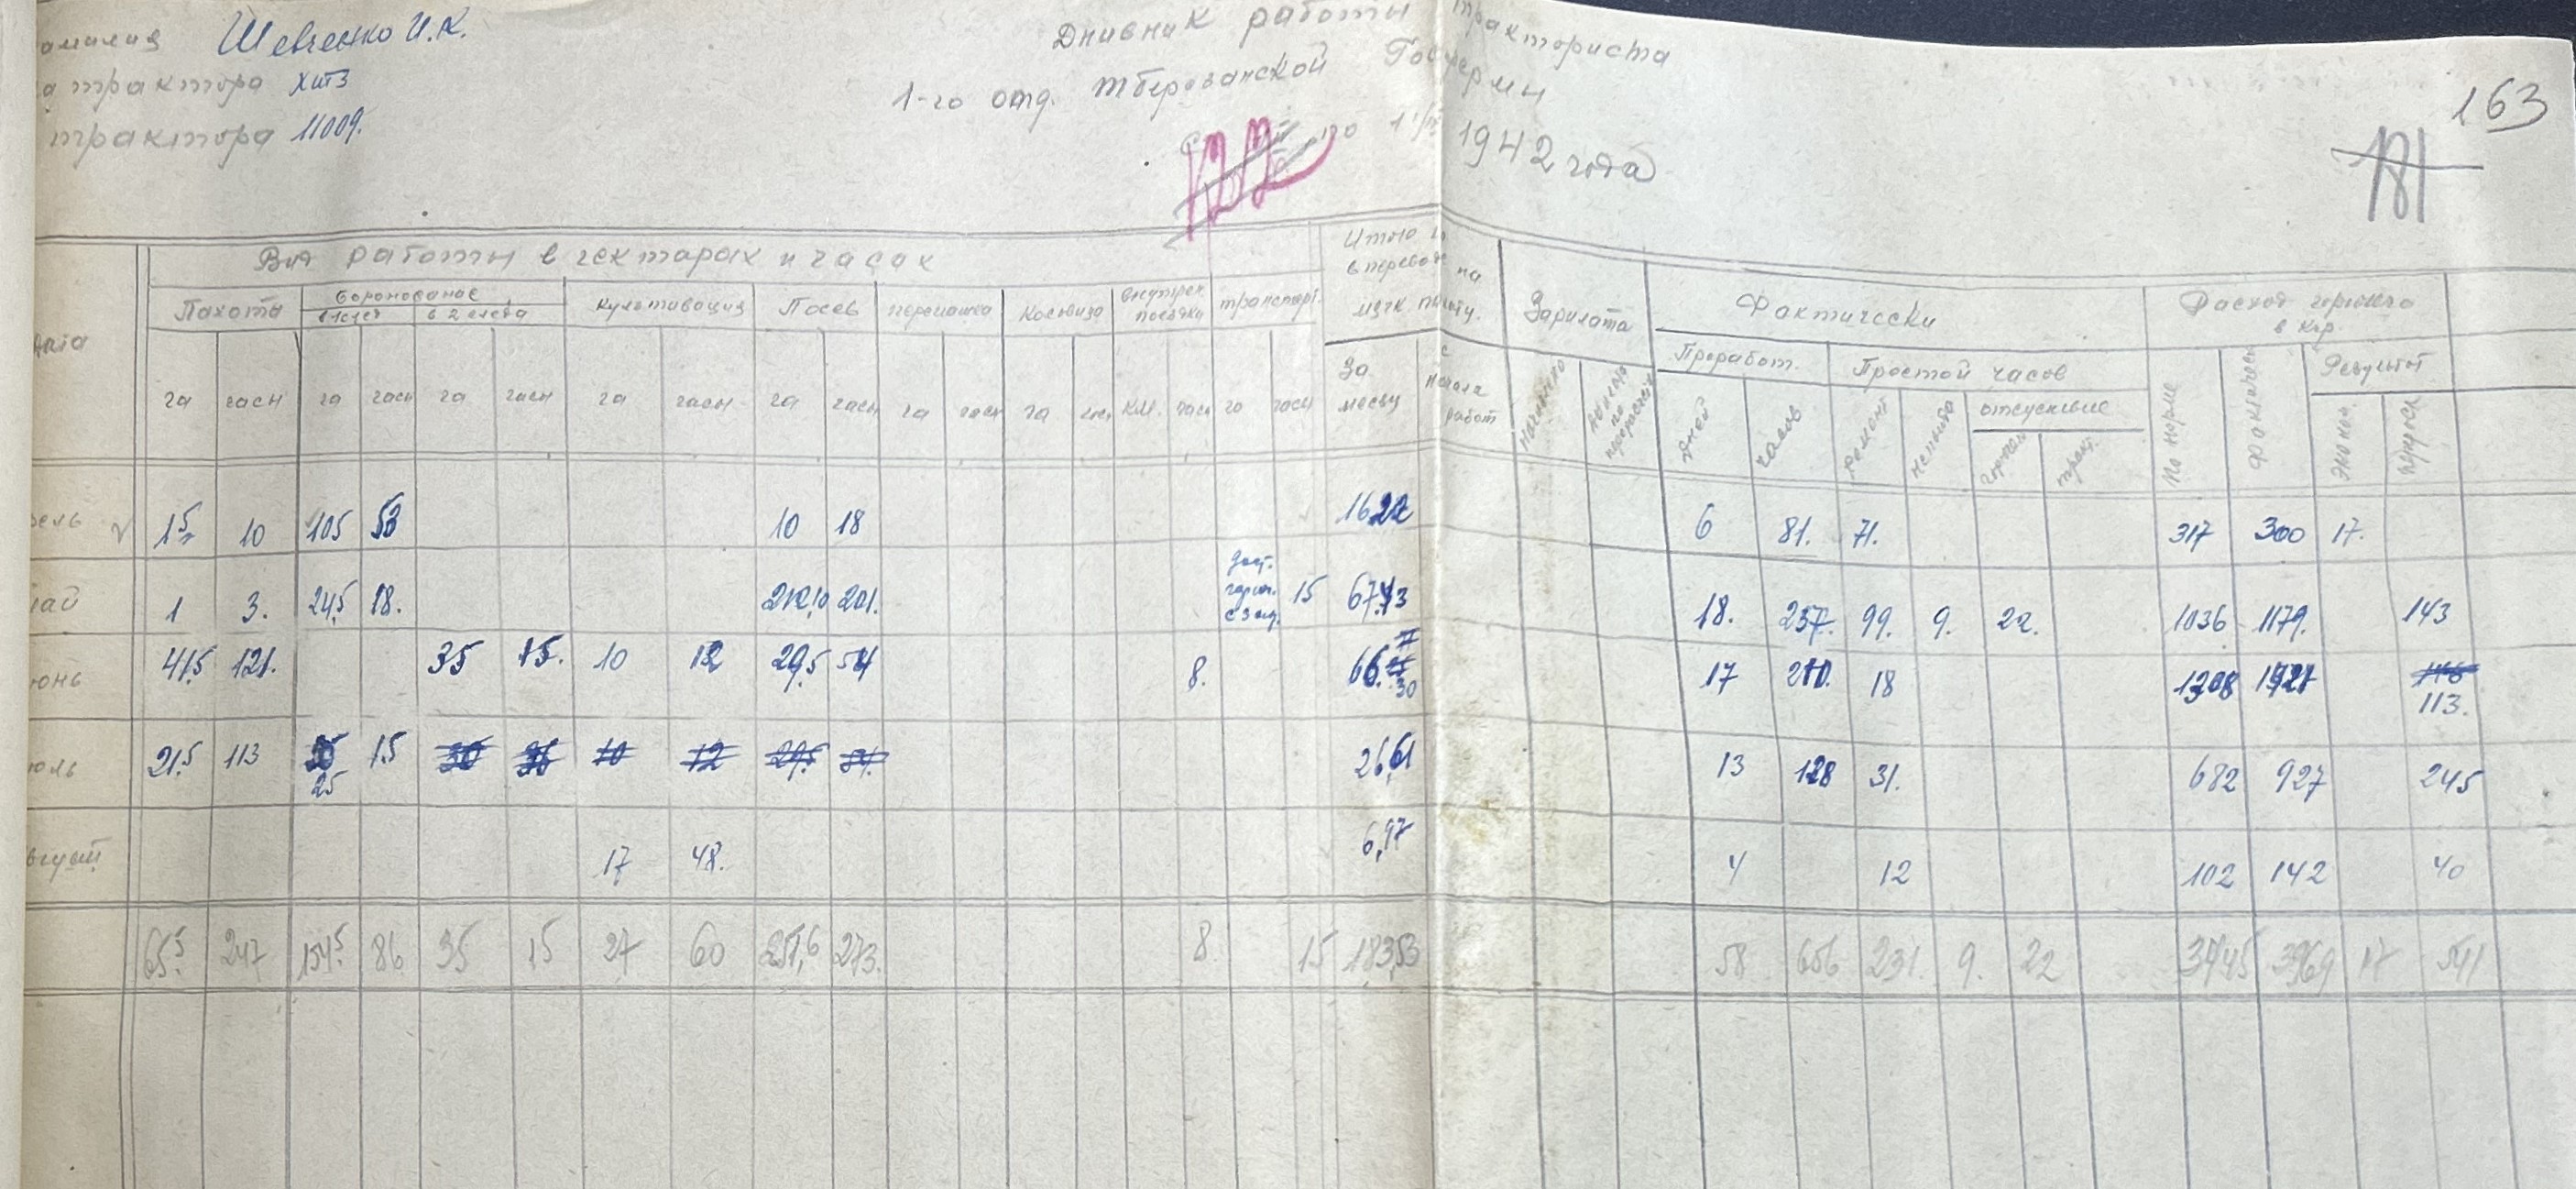 амилия Шевченко И.К.
а трактора ХТЗ
трактора 11009.
Дневник работы тракториста
1-го отд. Тберозанской Госфермы
по 1942 года
163
181
Вид работы в гектарах и часах
Итого в переводе на мягк. пахоту.
Зарплата
Фактически
Расход горючего в кгр.
дата
Пахота
боронование
в 1 след
в 2 следа
культивация
Посев
перепашка
Косовица
внутрен. поездки
транспорт.
За месяц
с начала работ
Начислено
Проработ.
Простой часов
отсутствие
Результат
га часы га часы га часы га часы га часы га часы га км. часы часы
дней часов ремонт непогода горюч. тракт. По норме Фактическ. эконом. пережог
рель 15 10 105 53 10 18 1622 6 81. 71. 317 300 17.
ай 1 3. 24,5 18. 212,10 201. дост. горюч. 15 67,43 18. 237. 99. 9. 22. 1036 1179. 143
юнь 41,5 121. 35 15. 10 12 29,5 54 8. 66. 30 17 210. 18 1308 1421 113.
юль 21,5 113 25 15 30 10 12 29,5 54. 26,61 13 128 31. 682 927 245
вгуст 17 48. 6,97 4 12 102 142 40
65,5 247 154,5 86 35 15 27 60 251,6 273. 8. 15 183,53 58 656 231. 9. 22 3445 3969 17 541